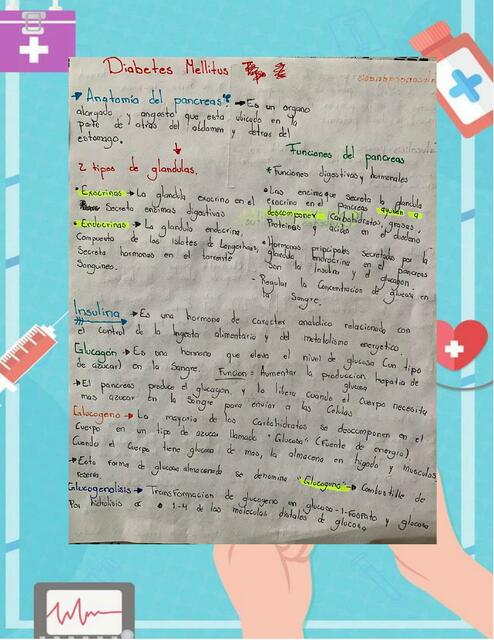 Diabetes Mellitus Tipo 2
→ Anatomía del pancreas → Es un organo
alargado y angosto que esta ubicado en la
parte de atras del abdomen y detras del
estomago.
2 tipos de glandulas.
• Exocrinas → La glandula exocrino en el
Secreta enzimas digestivas
• Endocrinas → La glandula endocrina,
Compuesta de los islotes de Langerhans,
Secreta hormonas en el torrente
Sanguineo.
Funciones del pancreas
* Funciones digestivas y hormonales
• Las enzimas que secreta la glandula
exocrino en el pancreas ayudan a
descomponer carbohidratos, grasas,
Proteinas y acidos en el duodeno
• Hormonas principales secretadas por la
glandula endrocrino en el pancreas
Son la Insulina y el glucagon.
Regular la Concentración de glucosa en
la Sangre.
Insulina → Es una hormona de carácter anabólico relacionado con
el control de la ingesta alimentaria y del metabolismo energetico
Glucagón → Es una hormona que eleva el nivel de glucosa (un tipo
de azucar) en la Sangre. Funcion: Aumentar la produccion hepatica de
glucosa
→ El pancreas produce el glucagon, y lo libera cuando el cuerpo necesita
mas azucar en la Sangre para enviar a las Celulas
Glucogeno → La mayoria de los Carbohidratos se descomponen en el
Cuerpo en un tipo de azucar llamado "Glucosa" (Fuente de energia)
Cuando el Cuerpo tiene glucosa de mas, la almacena en higado y musculos
→ Esta forma de glucosa almacenada se denomina "Glucogeno" → Combustible de
reserva.
Glucogenolisis → Transformacion de glucogeno en glucosa-1-fosfato y glucosa
Por hidrolisis α 1-4 de las moleculas distales de glucosa.